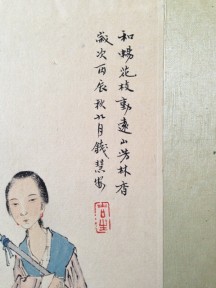 和暢花枝動遠山芳林香
歲次丙辰秋九月錢慧安
吉生